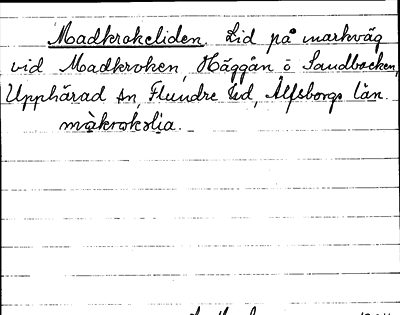 Madkrokeliden. Lid på markväg
vid Madkroken, Häggån o Sandbacken,
Upphärad sn, Flundre hd, Älfsborgs län.
màkrokolia.